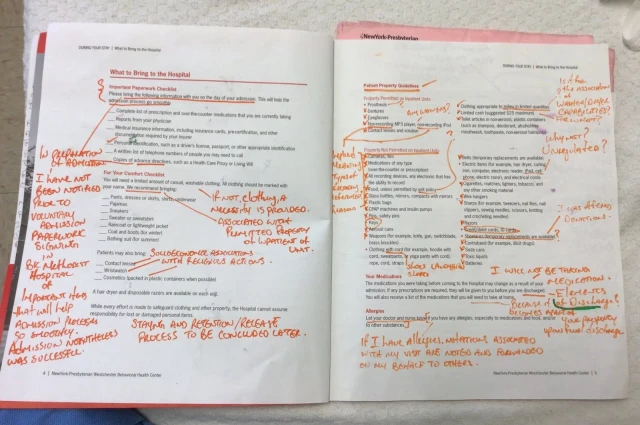 DURING YOUR STAY | What to Bring to the Hospital
What to Bring to the Hospital
Important Paperwork Checklist
Please bring the following information with you on the day of your admission. This will help the
admission process go smoothly.
Complete list of prescription and over-the-counter medications that you are currently taking
Reports from your physician
Medical insurance information, including insurance cards, pre-certification, and other
documentation required by your insurer
Personal identification, such as a driver's license, passport, or other appropriate identification
A written list of telephone numbers of people you may need to call
Copies of advance directives, such as a Health Care Proxy or Living Will
For Your Comfort Checklist
You will need a limited amount of casual, washable clothing. All clothing should be marked with
your name. We recommend bringing:
Pants, dresses or skirts, shorts, underwear
Pajamas
Sneakers
Sweater or sweatshirt
Raincoat or lightweight jacket
Coat and boots (for winter)
Bathing suit (for summer)
Patients may also bring:
Contact lenses
Wristwatch
Cosmetics (packed in plastic containers when possible)
A hair dryer and disposable razors are available on each unit.
While every effort is made to safeguard clothing and other property, the Hospital cannot assume
responsibility for lost or damaged personal items.
4 | NewYork-Presbyterian Westchester Behavioral Health Center
IN PREPARATION
OF ADMISSION
I HAVE NOT
BEEN NOTIFIED
PRIOR TO
VOLUNTARY
ADMISSION
PAPERWORK
SIGNING
IN
BK Methodist
HOSPITAL
OF
IMPORTANT ITEMS
that will help
ADMISSION PROCESS
GO SMOOTHLY.
ADMISSION NONETHELESS
WAS SUCCESSFUL.
IF NOT, CLOTHING, A
NECESSITY IS PROVIDED.
ASSOCIATED WITH
PERMITTED PROPERTY
OF INPATIENT OF
UNIT.
SOCIOECONOMIC ASSOCIATIONS
WITH RELIGIOUS ACTIONS.
STAYING AND RETENTION/RELEASE
PROCESS TO BE CONCLUDED LATER.
NewYork-Presbyterian
DURING YOUR STAY | What to Bring to the Hospital
Patient Property Guidelines
Property Permitted on Inpatient Units
Prosthesis
Dentures
Eyeglasses
Non-recording MP3 player, non-recording iPod
Contact lenses and solution
Clothing appropriate to
Limited cash (suggested $20 maximum)
Toilet articles in nonaerosol, plastic containers
(such as shampoo, deodorant, aftershave,
mouthwash, toothpaste, nonvessel
Property Not Permitted on Inpatient Units
Cameras, film
Medications of any type
(over-the-counter or prescription)
All recording devices, any electronics that has
the ability to record
Food, unless permitted by unit policy
Glass bottles, mirrors, compacts with mirrors
Plastic bags
CPAP machines and insulin pumps
Pins, safety pins
Keys
Aerosol cans
Weapons (for example, knife, gun, switchblade,
brass knuckles)
Clothing with cord (for example, hoodie with
cord, sweatpants, or yoga pants with cord),
rope, cord, straps
Electric items (for example, hair dryer, curling
iron, computer, electronic reader, iPad, cell
phone, electric razor), electrical cords
Cigarettes, matches, lighters, tobacco, and
any other smoking material
Wire hangers
Sharps (for example, tweezers, nail files, nail
clippers, sewing needles, scissors, knitting
and crocheting needles)
Razors
Credit/debit cards, ID cards
Contraband (for example, illicit drugs)
Soda cans
Toxic liquids
Batteries
Your Medications
The medications you were taking before coming to the Hospital may change as a result of your
admission. If any prescriptions are required, they will be given to you before you are discharged.
You will also receive a list of the medications that you will need to take at home.
Allergies
Let your doctor and nurse know if you have any allergies, especially to medications and food, and/or
to other substances.
NewYork-Presbyterian Westchester Behavioral Health Center | 5
Any Wonders?
Is it for
the Association
of
CAPABILITIES?
Why not?
Unregulated?
I was offered
Donations.
I WILL NOT BE TAKING
MEDICATION.
Elements
of Discharge
Because it
becomes
your property
upon actual discharge.
IF I have Allergies, NOTATIONS ASSOCIATED
with my visit are NOTED AND FORWARDED
ON MY BEHALF TO OTHERS.